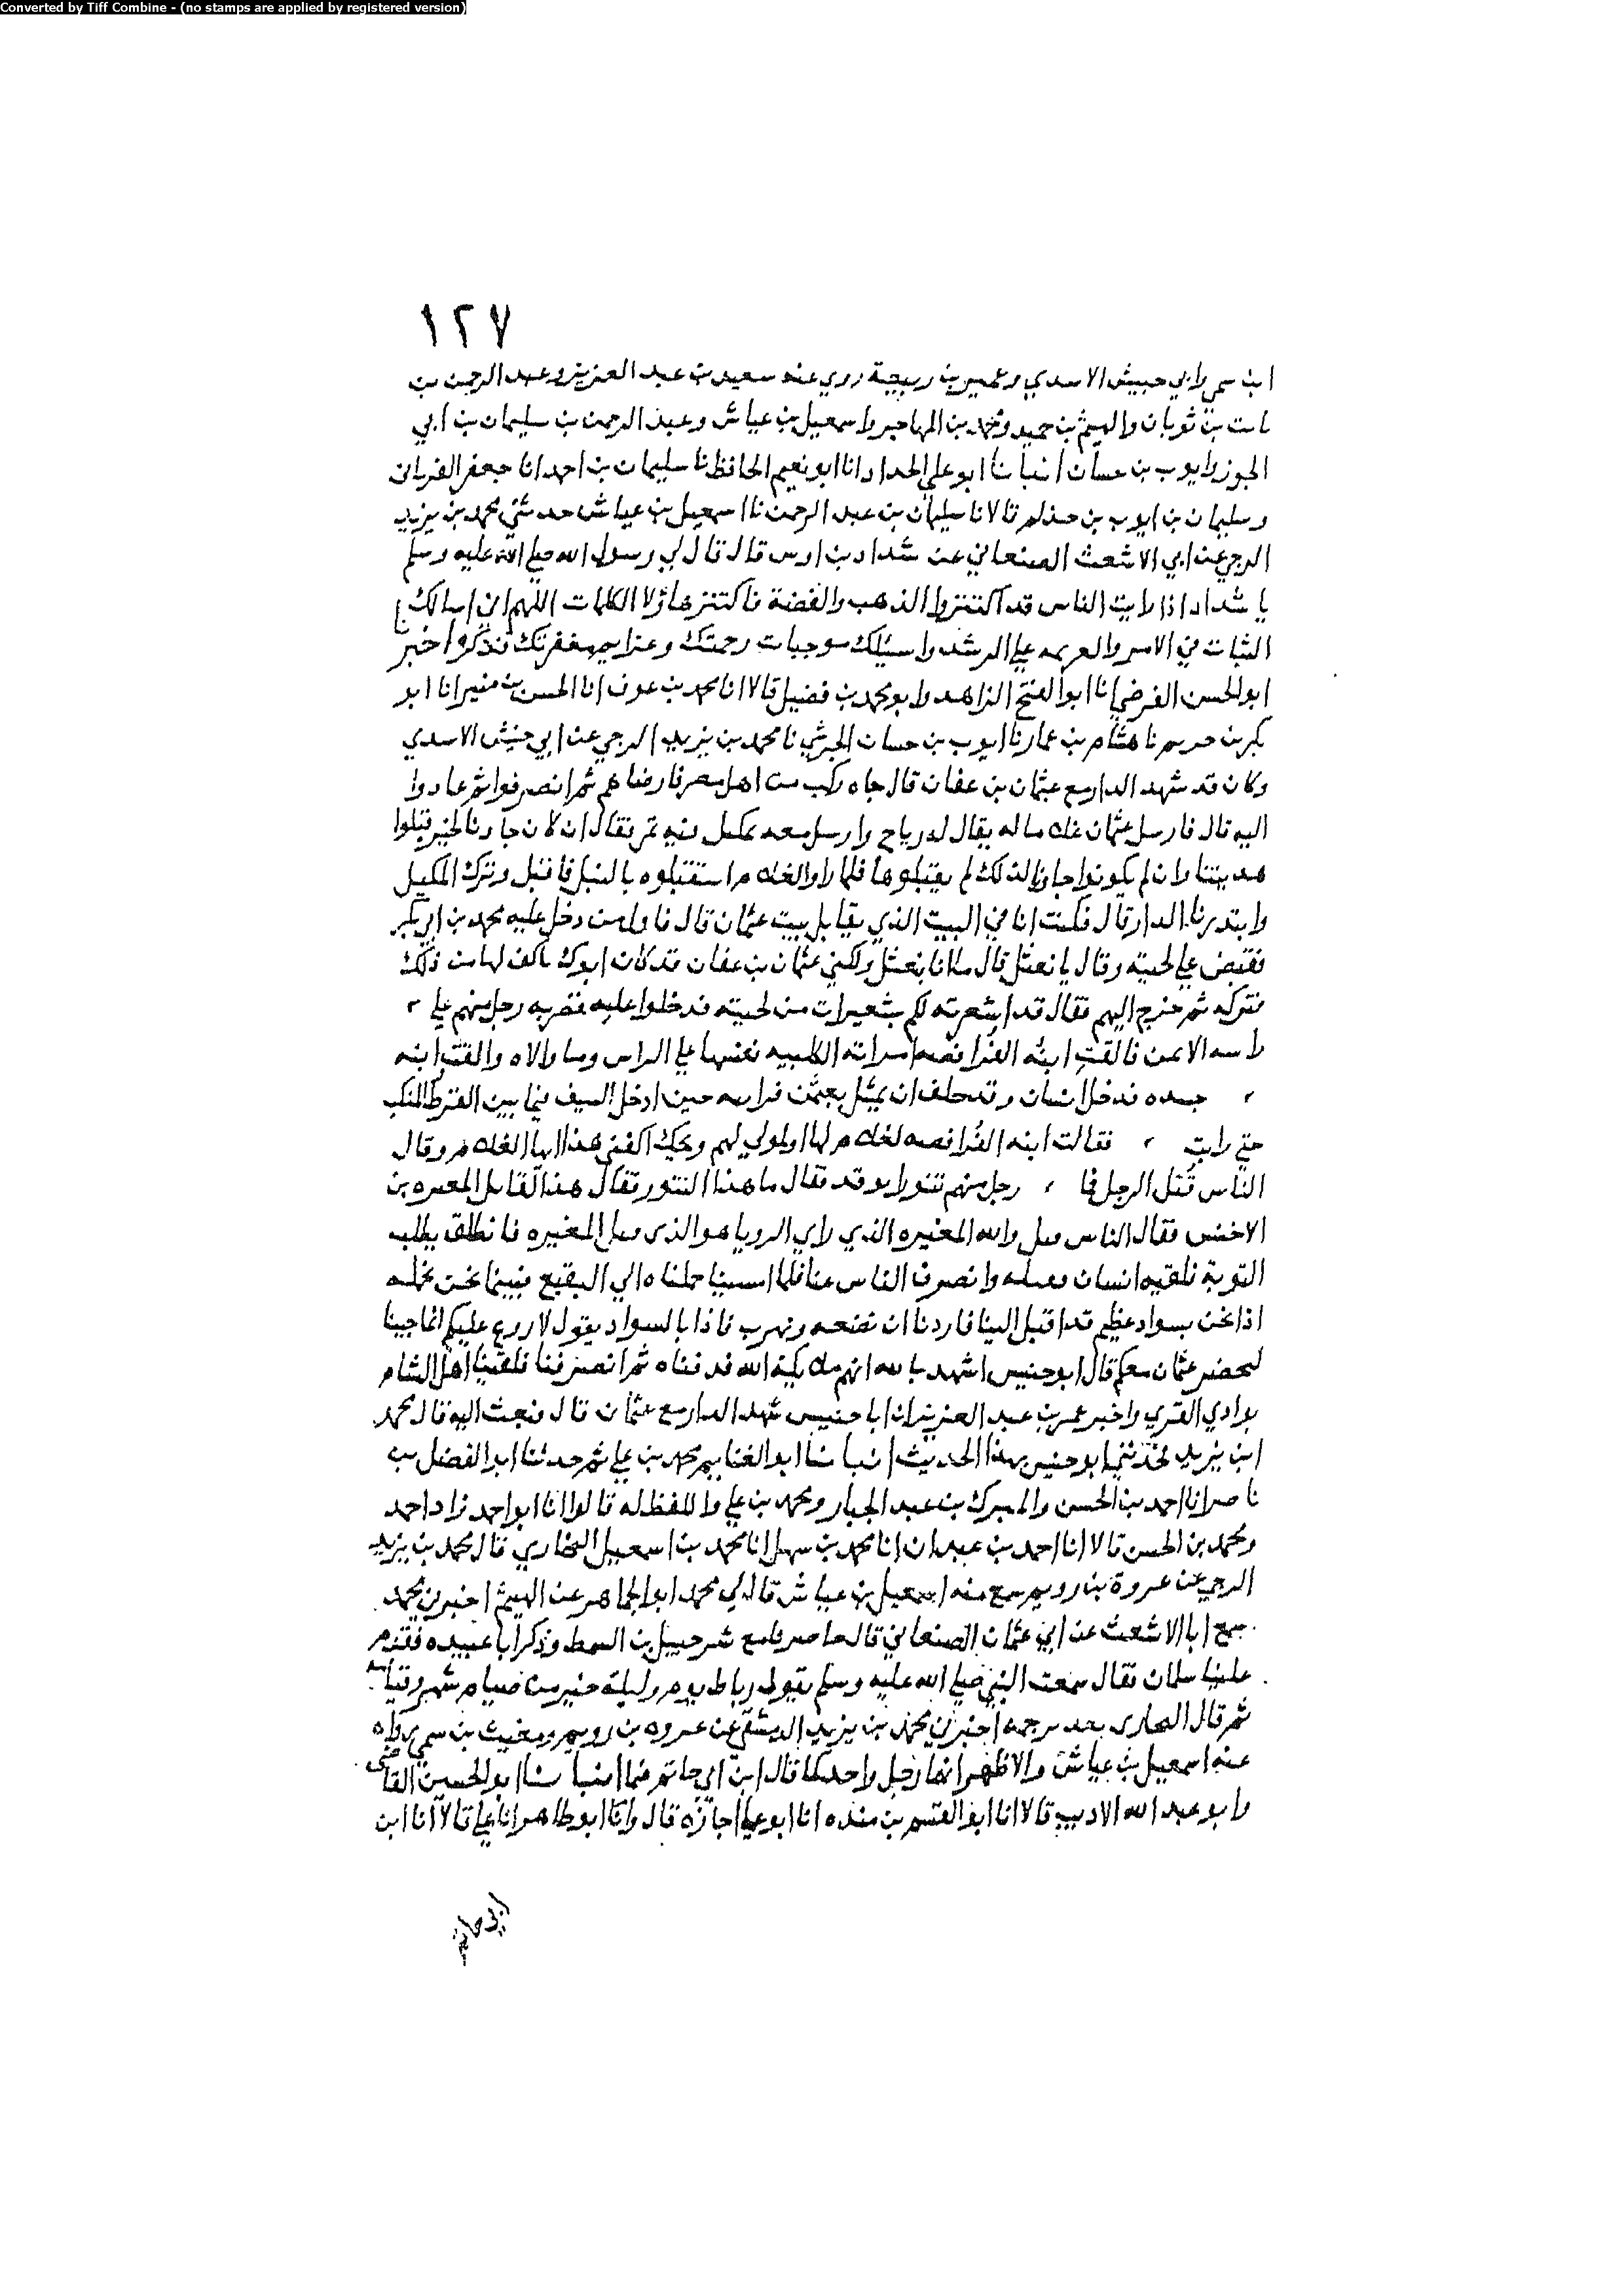 Converted by Tiff Combine - (no stamps are applied by registered version)
١٢٧
ابن سمي وابي حبيش الاسدي وعمير بن ربيعة روي عنه سعيد بن عبد العزيز وعبد الرحمن بن
ثابت بن ثوبان والهيثم بن حميد ومحمد بن المهاجر واسمعيل بن عياش وعبد الرحمن بن سليمان بن ابي
الجوز وايوب بن حسان انبانا ابو علي الحداد انا ابو نعيم الحافظ نا سليمان بن احمد انا جعفر الفريابي
وسليمان بن ايوب بن حذلم قالا نا سليمان بن عبد الرحمن نا اسمعيل بن عياش حدثني محمد بن يزيد
الرحبي عن ابي الاشعث الصنعاني عن شداد بن اوس قال قال لي رسول الله صلي الله عليه وسلم
يا شداد اذا رايت الناس قد اكتنزوا الذهب والفضة فاكتنز هاؤلا الكلمات اللهم اني اسالك
الثبات في الامر والعزيمه علي الرشد واسئلك موجبات رحمتك وعزايم مغفرتك فذكره اخبرنا
ابو الحسن الفرضي انا ابو الفتح الزاهد وابو محمد بن فضيل قالا انا محمد بن عوف انا الحسن بن منير انا ابو
بكر بن خريم نا هشام بن عمار نا ايوب بن حسان الجرشي نا محمد بن يزيد الرحبي عن ابي حنيش الاسدي
وكان قد شهد الدار مع عثمان بن عفان قال جاه ركب من اهل مصر فارضاهم ثم انصرفوا ثم عادوا
اليه قال فارسل عثمان غلاما له يقال له رياح وارسل معه بمكيل فيه تمر فقال ان كان جاونا لخير قبلوا
هديتنا وان لم يكونوا جاوا لذلك لم يقبلوها فلما راوا الغلام استقبلوه بالنبل فاقبل وترك المكيل
وابتدرنا الدار قال فكنت انا في البيت الذي يقابل بيت عثمان قال فاول من دخل عليه محمد بن ابي بكر
فقبض علي لحيته وقال يا نعثل قال ما انا بنعثل ولكني عثمان بن عفان قد كان ابوك يكف لها من ذلك
فتركه ثم خرج اليهم فقال قد اشعرته لكم بشعيرات من لحيته فدخلوا عليه فضربه رجل منهم علي
راسه الايمن فالقت ابنة الفرافصه امراته الكلبيه نفسها علي الراس وما والاه والقت ابنه
جسده فدخل انسان وقد حلف ان يمثل بعثمن فرايته حين ادخل السيف فيما بين القرط والمنكب
حتي رايت فقالت ابنه الفرافصه لغلام لها او لمولي لهم ويحك اكفني هذا الغلام وقال
الناس قتل الرجل فما رجل منهم تنورا يوقد فقال ما هذا التنور فقال هذا القاتل المغيره بن
الاخنس فقال الناس قتل والله المغيره الذي راي الرويا هو الذي قتل المغيره فانطلق يطلب
التوبة فلقيه انسان فقتله وانصرف الناس عنا فلما امسينا حملناه الي البقيع فبينما نحن نحمله
اذا نحن بسواد عظيم قد اقبل الينا فاردنا ان نضعه ونهرب فاذا بالسواد يقول لا روع عليكم انما جينا
لنحضر عثمان معكم قال ابو حنيس اشهد بالله انهم ملائكية الله فدفناه ثم انصرفنا فلقينا اهل الشام
بوادي القري واخبر عمر بن عبد العزيز ان ابا حنيس شهد الدار مع عثمان قال فبعث اليه قال محمد
ابن يزيد فحدثني ابو حنيس بهذا الحديث انبانا ابو الغنايم محمد بن علي ثم حدثنا ابو الفضل بن
ناصر انا احمد بن الحسن والمبرك بن عبد الجبار ومحمد بن علي واللفظ له قالوا انا ابو احمد زاد احمد
ومحمد بن الحسن قالا انا احمد بن عبدان انا محمد بن سهل انا محمد بن اسمعيل البخاري قال محمد بن يزيد
الرحبي عن عروة بن رويم سمع منه اسمعيل بن عياش قال لي محمد ابو الجماهر عن الهيثم اخبرني محمد
سمع ابا الاشعث عن ابي عثمان الصنعاني قال حاصرنا مع شرحبيل بن السمط وذكر ابا عبيده فقدم
علينا سلمان فقال سمعت النبي صلي الله عليه وسلم يقول رباط يوم وليلة خير من صيام شهر وقيامه
ثم قال البخاري بعد ترجمه اخبرني محمد بن يزيد الدمشقي عن عروه بن رويم ومغيث بن سمي رواه
عنه اسمعيل بن عياش والاظهر انهما رجل واحد كما قال ابن ابي حاتم فيما انبانا ابو الحسين القاضي
وابو عبد الله الاديب قالا انا ابو القسم بن منده انا ابو علي اجازة قال وانا ابو طاهر انا علي قالا انا ابن
ابي حاتم